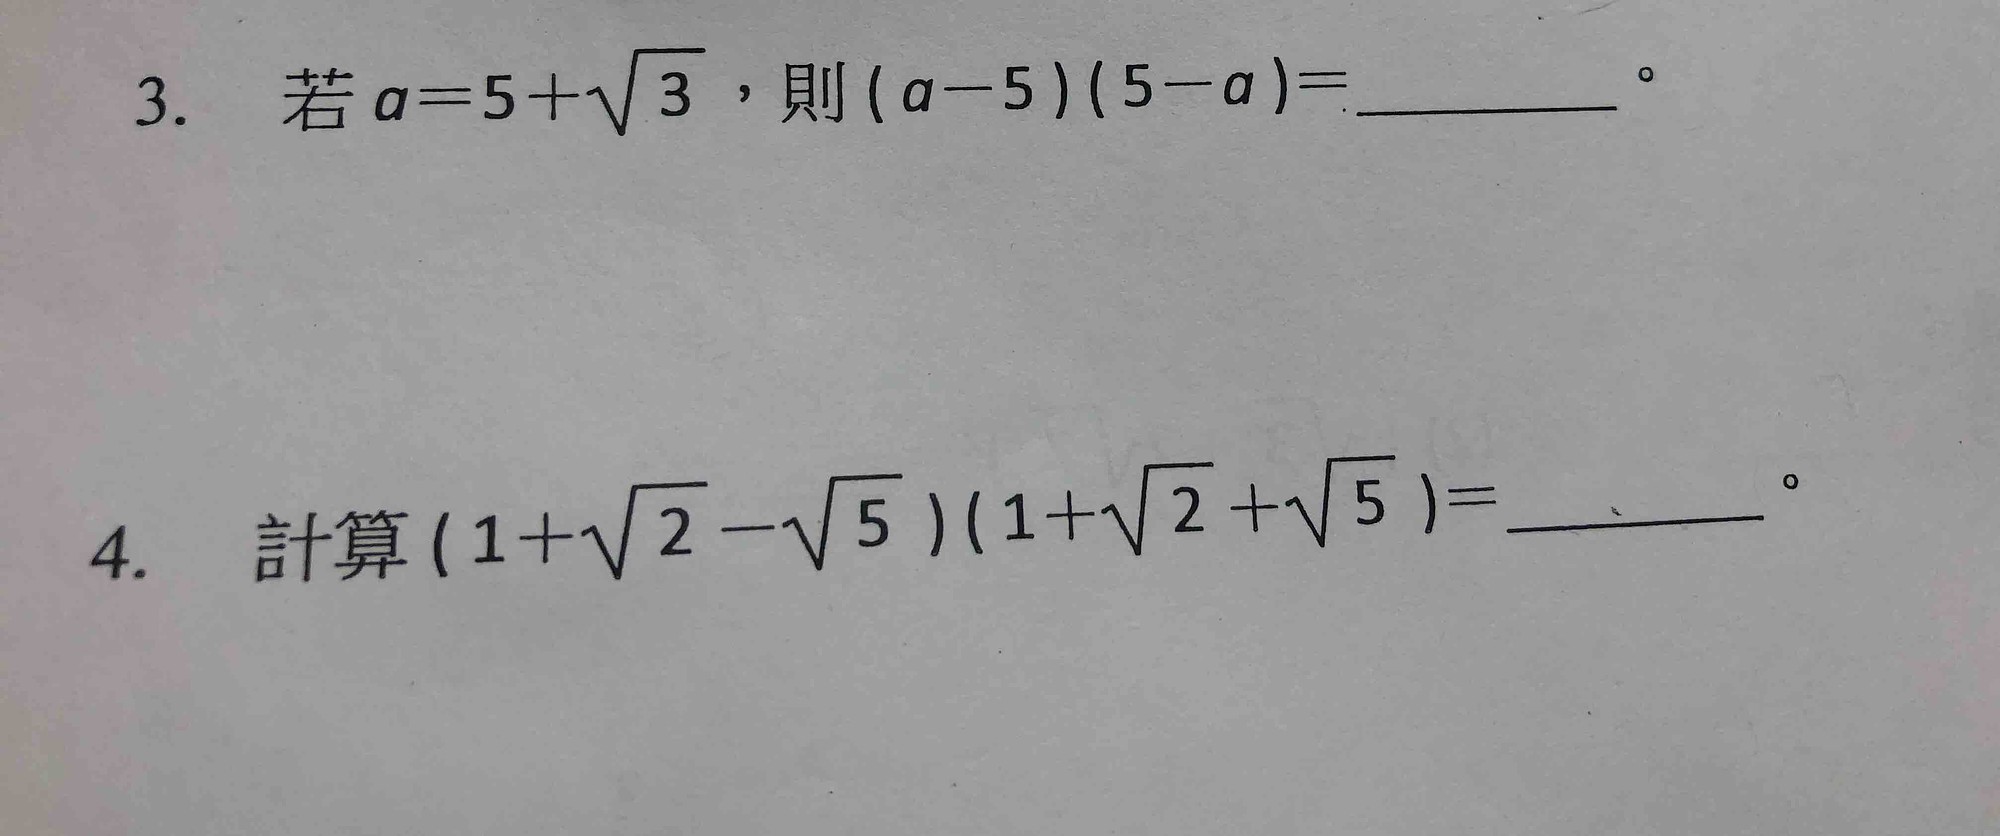 3. 若 a=5+√3，則(a−5)(5−a)=________。
4. 計算(1+√2−√5)(1+√2+√5)=________。